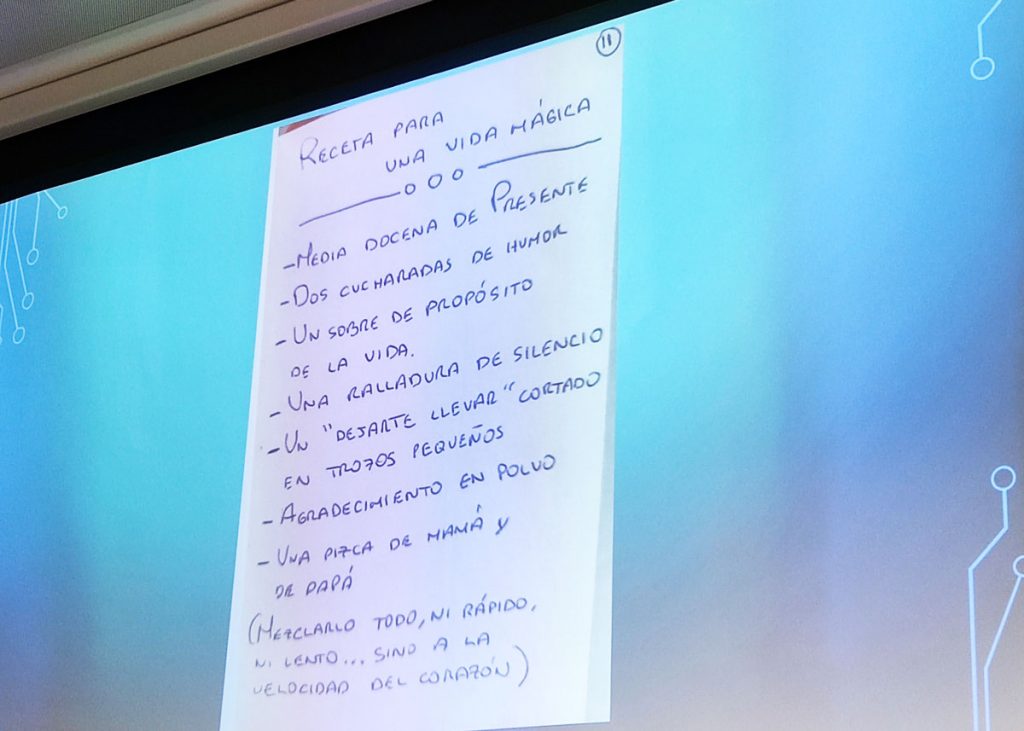 11
RECETA PARA
UNA VIDA MÁGICA
-MEDIA DOCENA DE PRESENTE
-DOS CUCHARADAS DE HUMOR
-UN SOBRE DE PROPÓSITO
DE LA VIDA.
-UNA RALLADURA DE SILENCIO
-UN "DEJARTE LLEVAR" CORTADO
EN TROZOS PEQUEÑOS
-AGRADECIMIENTO EN POLVO
-UNA PIZCA DE MAMÁ Y
DE PAPÁ
(MEZCLARLO TODO, NI RÁPIDO,
NI LENTO... SINO A LA
VELOCIDAD DEL CORAZÓN)